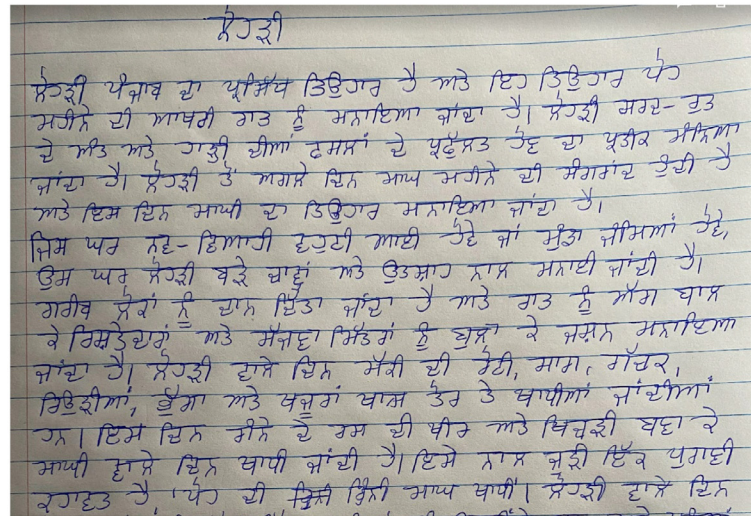 ਲੋਹੜੀ
ਲੋਹੜੀ ਪੰਜਾਬ ਦਾ ਪ੍ਰਸਿੱਧ ਤਿਉਹਾਰ ਹੈ ਅਤੇ ਇਹ ਤਿਉਹਾਰ ਪੋਹ
ਮਹੀਨੇ ਦੀ ਆਖਰੀ ਰਾਤ ਨੂੰ ਮਨਾਇਆ ਜਾਂਦਾ ਹੈ। ਲੋਹੜੀ ਸਰਦ-ਰੁਤ
ਦੇ ਅੰਤ ਅਤੇ ਹਾੜ੍ਹੀ ਦੀਆਂ ਫਸਲਾਂ ਦੇ ਪ੍ਰਫੁੱਲਤ ਹੋਣ ਦਾ ਪ੍ਰਤੀਕ ਮੰਨਿਆ
ਜਾਂਦਾ ਹੈ। ਲੋਹੜੀ ਤੋਂ ਅਗਲੇ ਦਿਨ ਮਾਘ ਮਹੀਨੇ ਦੀ ਸੰਗਰਾਂਦ ਹੁੰਦੀ ਹੈ
ਅਤੇ ਇਸ ਦਿਨ ਮਾਘੀ ਦਾ ਤਿਉਹਾਰ ਮਨਾਇਆ ਜਾਂਦਾ ਹੈ।
ਜਿਸ ਘਰ ਨਵ-ਵਿਆਹੀ ਵਹੁਟੀ ਆਈ ਹੋਵੇ ਜਾਂ ਮੁੰਡਾ ਜੰਮਿਆਂ ਹੋਵੇ,
ਉਸ ਘਰ ਲੋਹੜੀ ਬੜੇ ਚਾਵਾਂ ਅਤੇ ਉਤਸ਼ਾਹ ਨਾਲ ਮਨਾਈ ਜਾਂਦੀ ਹੈ।
ਗਰੀਬ ਲੋਕਾਂ ਨੂੰ ਦਾਨ ਦਿੱਤਾ ਜਾਂਦਾ ਹੈ ਅਤੇ ਰਾਤ ਨੂੰ ਅੱਗ ਬਾਲ
ਕੇ ਰਿਸ਼ਤੇਦਾਰਾਂ ਅਤੇ ਸੱਜਣਾ ਮਿੱਤਰਾਂ ਨੂੰ ਬੁਲਾ ਕੇ ਜਸ਼ਨ ਮਨਾਇਆ
ਜਾਂਦਾ ਹੈ। ਲੋਹੜੀ ਵਾਲੇ ਦਿਨ ਮੱਕੀ ਦੀ ਰੋਟੀ, ਸਾਗ, ਗੱਚਕ,
ਰਿਉੜੀਆਂ, ਖੁੱਗਾ ਅਤੇ ਖਜੂਰਾਂ ਖਾਸ ਤੋਰ ਤੇ ਖਾਧੀਆਂ ਜਾਂਦੀਆਂ
ਹਨ। ਇਸ ਦਿਨ ਗੰਨੇ ਦੇ ਰਸ ਦੀ ਖੀਰ ਅਤੇ ਖਿਚੜੀ ਬਣਾ ਕੇ
ਮਾਘੀ ਵਾਲੇ ਦਿਨ ਖਾਧੀ ਜਾਂਦੀ ਹੈ। ਇਸੇ ਨਾਲ ਜੁੜੀ ਇੱਕ ਪੁਰਾਣੀ
ਕਹਾਵਤ ਹੈ 'ਪੋਹ ਦੀ ਰਿੰਨੀ ਮਾਘ ਖਾਧੀ'। ਲੋਹੜੀ ਵਾਲੇ ਦਿਨ